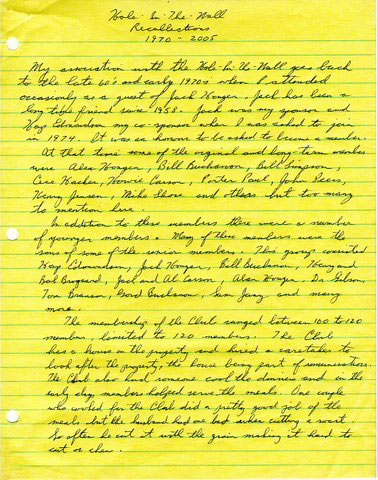 Hole-In-The-Wall
Recollections
1970 - 2005
My association with the Hole-In-The-Wall goes back
to the late 60's and early 1970s when I attended
occasionly as a guest of Jack . Jack has been a
long time friend since 1958. Jack was my sponsor and
my co-sponsor when I was asked to join
in 1974. It was an honour to be asked to become a member.
At that time some of the original and long term members
were Alex , Bill Buchanan, Bill Simpson,
Cece Hacker, Howie Carson, Porter Paul, John
Henry Jensen, Mike Shore and others but too many
to mention here.
In addition to these members there were a number
of younger members. Many of these members were the
sons of some of the senior members. This group consisted
Jack , Bill Buchanan, Harry and
Bob , Jack and Al Carson, Alan , Dr. Gibson,
Tom , Gord , Jim and many
more.
The membership of the Club ranged between 100 to 120
members, limited to 120 members. The Club
has a house on the property and hired a caretaker to
look after the property, the house being part of remuneration.
The Club also had someone cook the dinners and in the
early days members helped serve the meals. One couple
who worked for the Club did a pretty good job of the
meals but the husband had one bad when cutting a roast.
So often he cut it with the grain making it hard to
cut or chew.